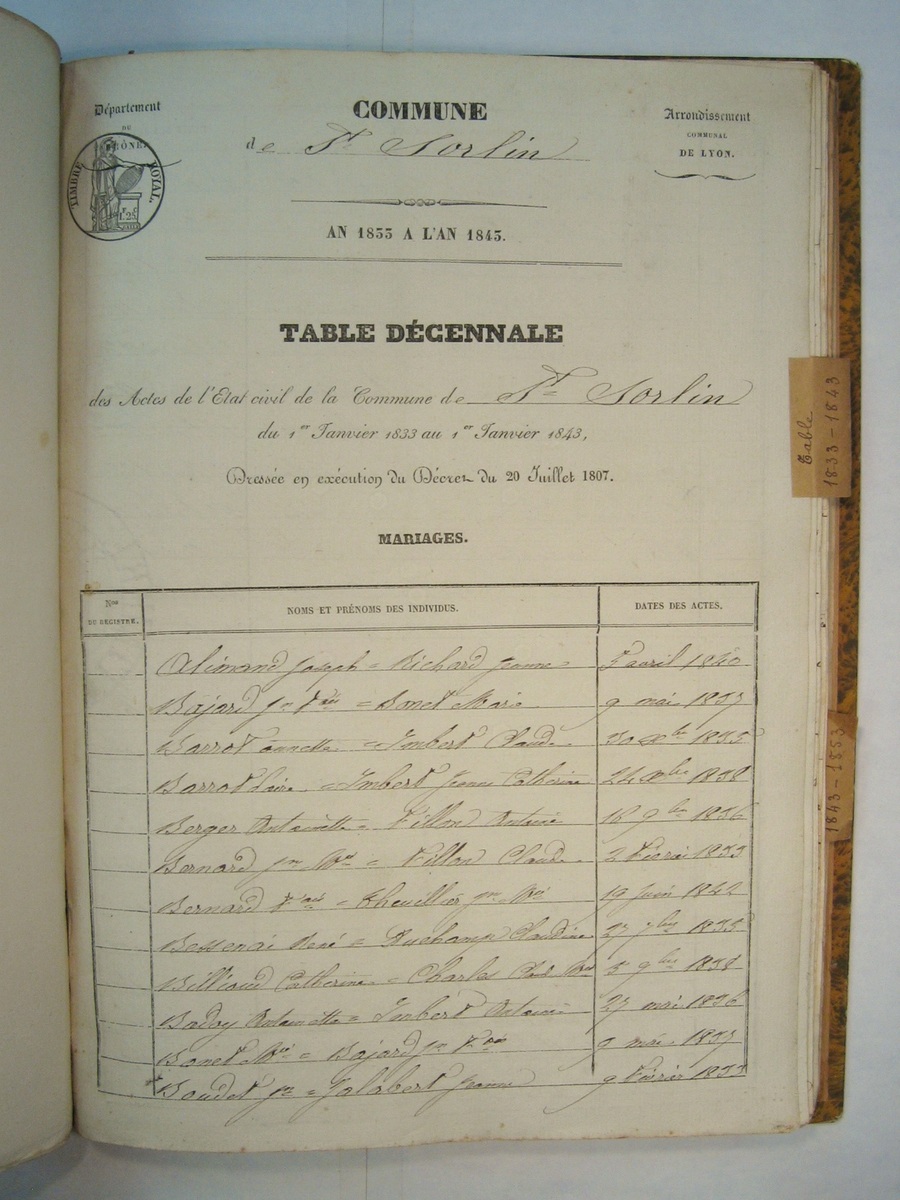 Département
DU
RHÔNE.
TIMBRE ROYAL.
1F. 25C
COMMUNE
de St Sorlin
Arrondissement
COMMUNAL
DE LYON.
AN 1833 A L'AN 1843.
TABLE DÉCENNALE
des Actes de l'Etat civil de la Commune de St Sorlin
du 1er Janvier 1833 au 1er Janvier 1843,
Dressée en exécution du Décret du 20 Juillet 1807.
MARIAGES.
Nos DU REGISTRE. NOMS ET PRÉNOMS DES INDIVIDUS. DATES DES ACTES.
Alimand Joseph = Richard Jeanne = 5 avril 1840
Bajard jn = Bonet Marie 9 mai 1837
Barrot annette = Imbert Claude 30 1835
Barrot = Imbert Jeanne Catherine 1838
Berger Antoinette = Villon Antoine 16 9bre 1836
Bernard = Villon Claude 2 Février 1833
Bernard = Thevillar 19 Juin 1842
Bessenai René = Duchamp Claudine 27 7bre 1835
Billiaud Catherine = Charles 5 9bre 1838
Badoy Antoinette = Imbert Antoine 27 mai 1836
Bonet Mie = Bajard jn 9 mai 1837
Boudet jn = Jalabert Jeanne 9 Février 1833
Table
1833-1843
1843-1853